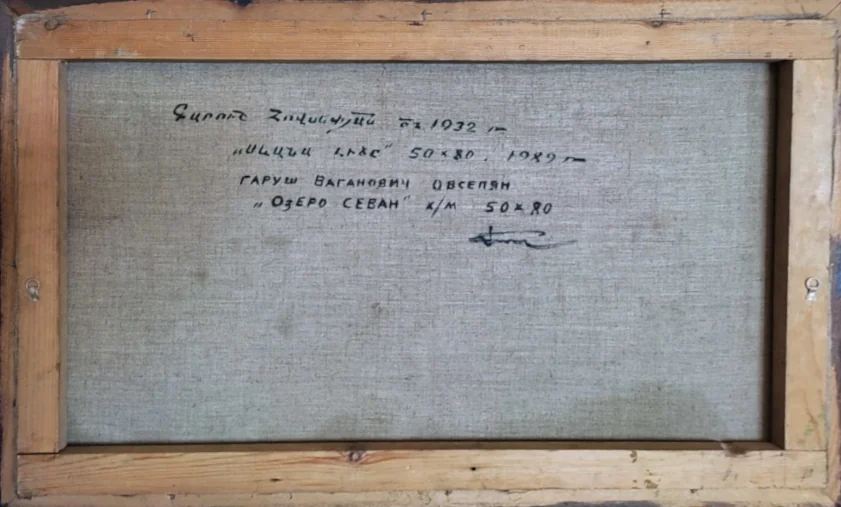 Գարուշ Հովսեփյան ծն 1932 թ
„Սևանա լիճը" 50×80. 1989 թ
ГАРУШ ВАГАНОВИЧ ОВСЕПЯН
„ОЗЕРО СЕВАН" х/м 50×80